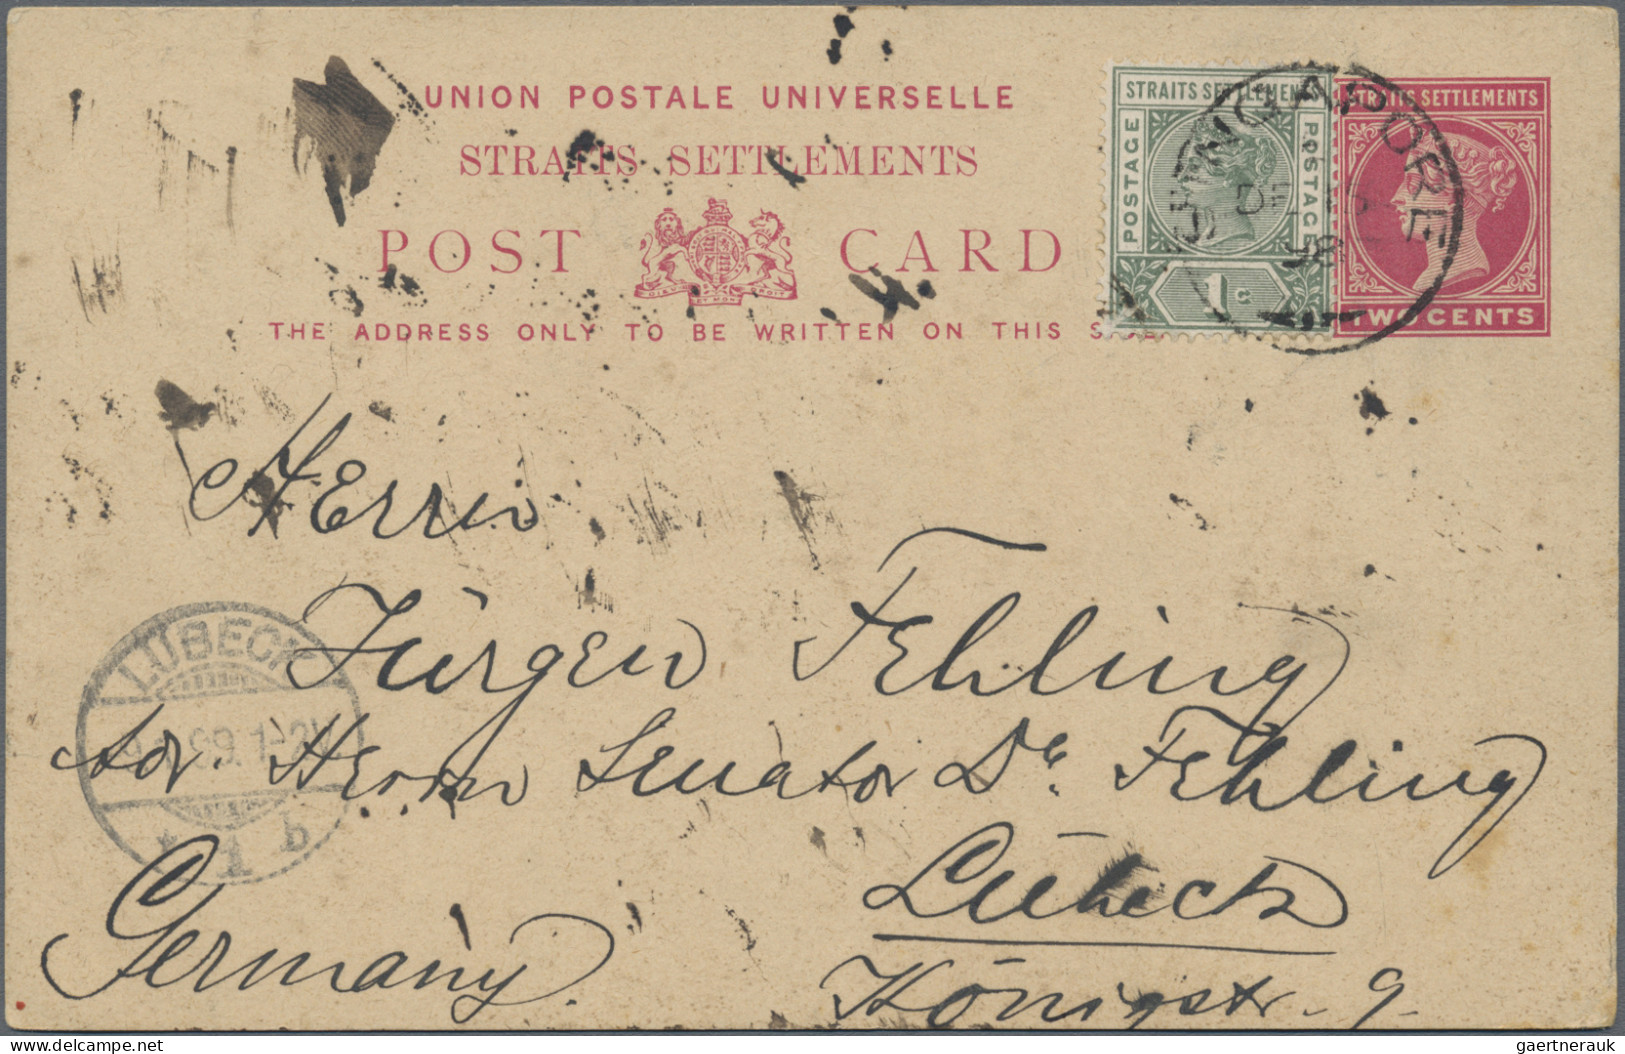 UNION POSTALE UNIVERSELLE
STRAITS SETTLEMENTS
POST CARD
THE ADDRESS ONLY TO BE WRITTEN ON THIS SIDE
STRAITS SETTLEMENTS
POSTAGE
POSTAGE
1 c
STRAITS SETTLEMENTS
TWO CENTS
SINGAPORE
DE
98
Herrn
Jürgen Fehling
Adr. Herrn Senator Dr. Fehling
Lübeck
Königstr. 9.
Germany.
LÜBECK
99. 1-2N
* 1 b
delcampe.net
gaertnerauk